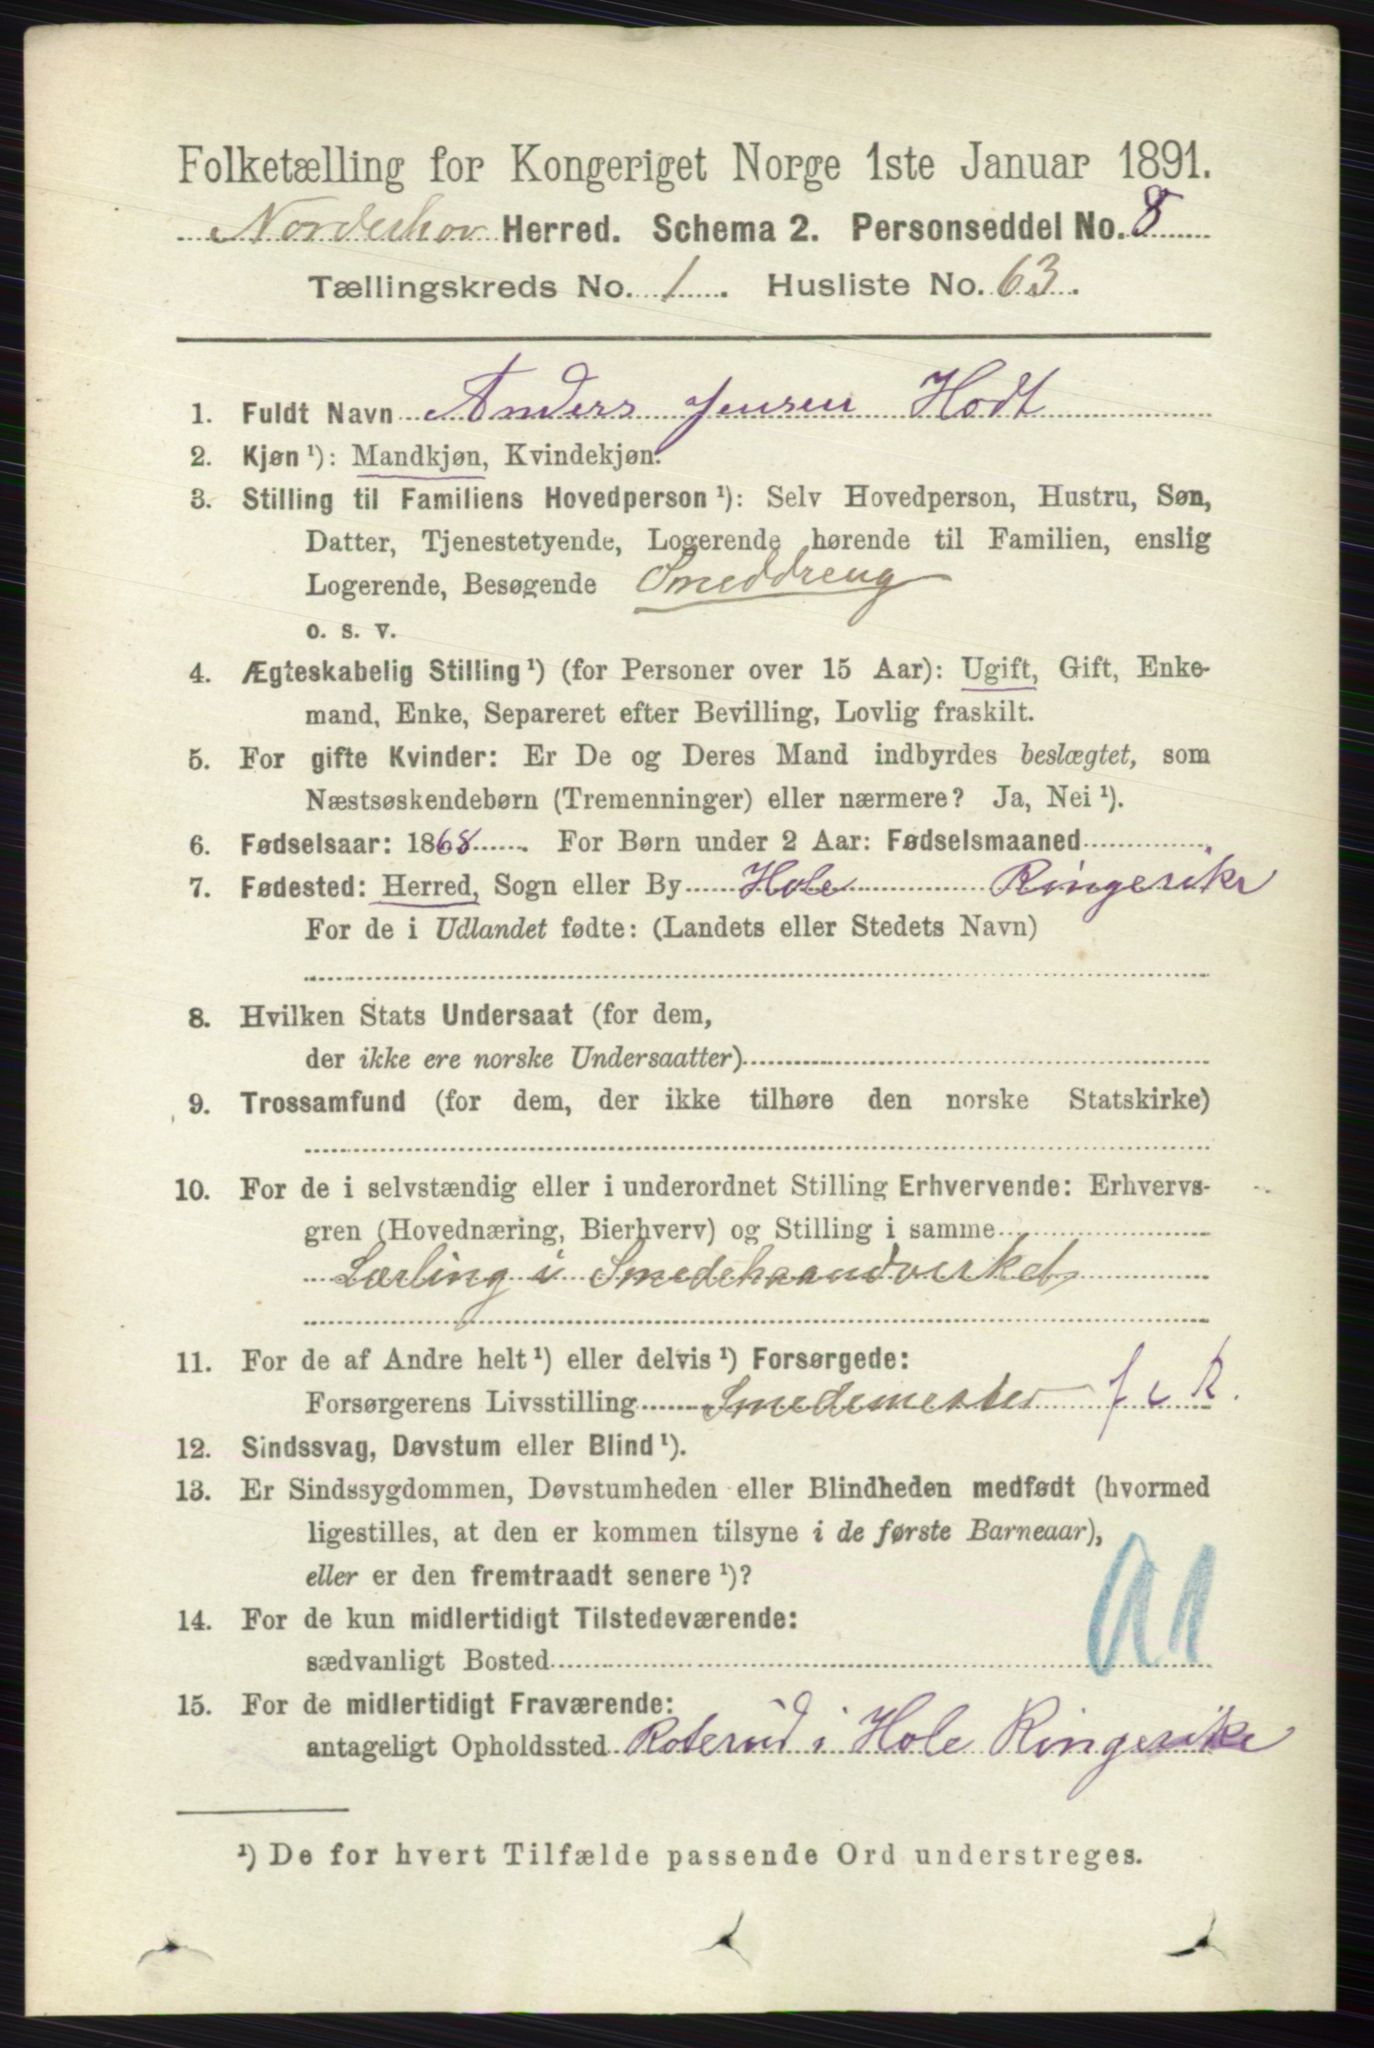 Folketælling for Kongeriget Norge 1ste Januar 1891.
Norderhov Herred. Schema 2. Personseddel No. 8
Tællingskreds No. 1. Husliste No. 63.
1. Fuldt Navn Anders Jensen Hodt
2. Kjøn ¹): Mandkjøn, Kvindekjøn.
3. Stilling til Familiens Hovedperson ¹): Selv Hovedperson, Hustru, Søn,
Datter, Tjenestetyende, Logerende hørende til Familien, enslig
Logerende, Besøgende Smeddreng
o. s. v.
4. Ægteskabelig Stilling ¹) (for Personer over 15 Aar): Ugift, Gift, Enke-
mand, Enke, Separeret efter Bevilling, Lovlig fraskilt.
5. For gifte Kvinder: Er De og Deres Mand indbyrdes beslægtet, som
Næstsøskendebørn (Tremenninger) eller nærmere? Ja, Nei ¹).
6. Fødselsaar: 1868. For Børn under 2 Aar: Fødselsmaaned
7. Fødested: Herred, Sogn eller By Hole Ringerike
For de i Udlandet fødte: (Landets eller Stedets Navn)
8. Hvilken Stats Undersaat (for dem,
der ikke ere norske Undersaatter)
9. Trossamfund (for dem, der ikke tilhøre den norske Statskirke)
10. For de i selvstændig eller i underordnet Stilling Erhvervende: Erhvervs-
gren (Hovednæring, Bierhverv) og Stilling i samme
Lærling i Smedehaandverket
11. For de af Andre helt ¹) eller delvis ¹) Forsørgede:
Forsørgerens Livsstilling Smedemester
12. Sindssvag, Døvstum eller Blind ¹).
13. Er Sindssygdommen, Døvstumheden eller Blindheden medfødt (hvormed
ligestilles, at den er kommen tilsyne i de første Barneaar),
eller er den fremtraadt senere ¹)?
14. For de kun midlertidigt Tilstedeværende:
sædvanligt Bosted
15. For de midlertidigt Fraværende:
antageligt Opholdssted Roterud i Hole Ringerike
¹) De for hvert Tilfælde passende Ord understreges.